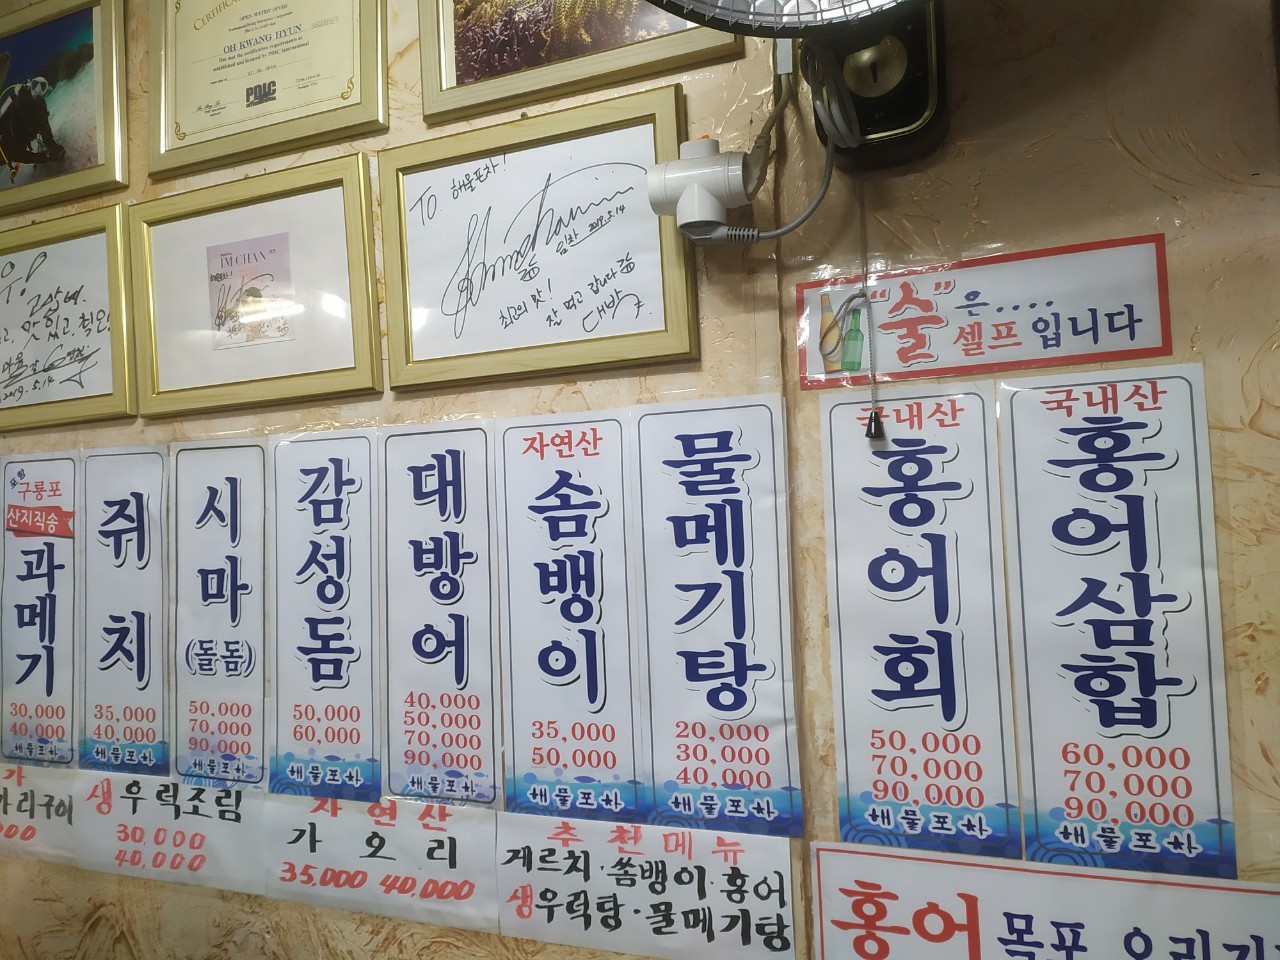 OPEN WATER DIVER
OH KWANG HYUN
Has met the certification requirements as
established and licensed by PDIC International
PDIC
TO. 해물포차!
임찬 2019.5.14
최고의 맛!
잘 먹고 갑니다
대박
IM CHAN
맛있고
2019.5.14
"술"은....
셀프입니다
포항
구룡포
산지직송
과메기
30,000
40,000
해물포차
쥐치
35,000
40,000
해물포차
시마
(돌돔)
50,000
70,000
90,000
해물포차
감성돔
50,000
60,000
해물포차
대방어
40,000
50,000
70,000
90,000
해물포차
자연산
솜뱅이
35,000
50,000
해물포차
물메기탕
20,000
30,000
40,000
해물포차
국내산
홍어회
50,000
70,000
90,000
해물포차
국내산
홍어삼합
60,000
70,000
90,000
해물포차
가리구이
생우럭조림
30.000
40,000
자연산
가오리
35.000 40.000
추천메뉴
게르치·쏨뱅이·홍어
생우럭탕·물메기탕
홍어 목포 오리지